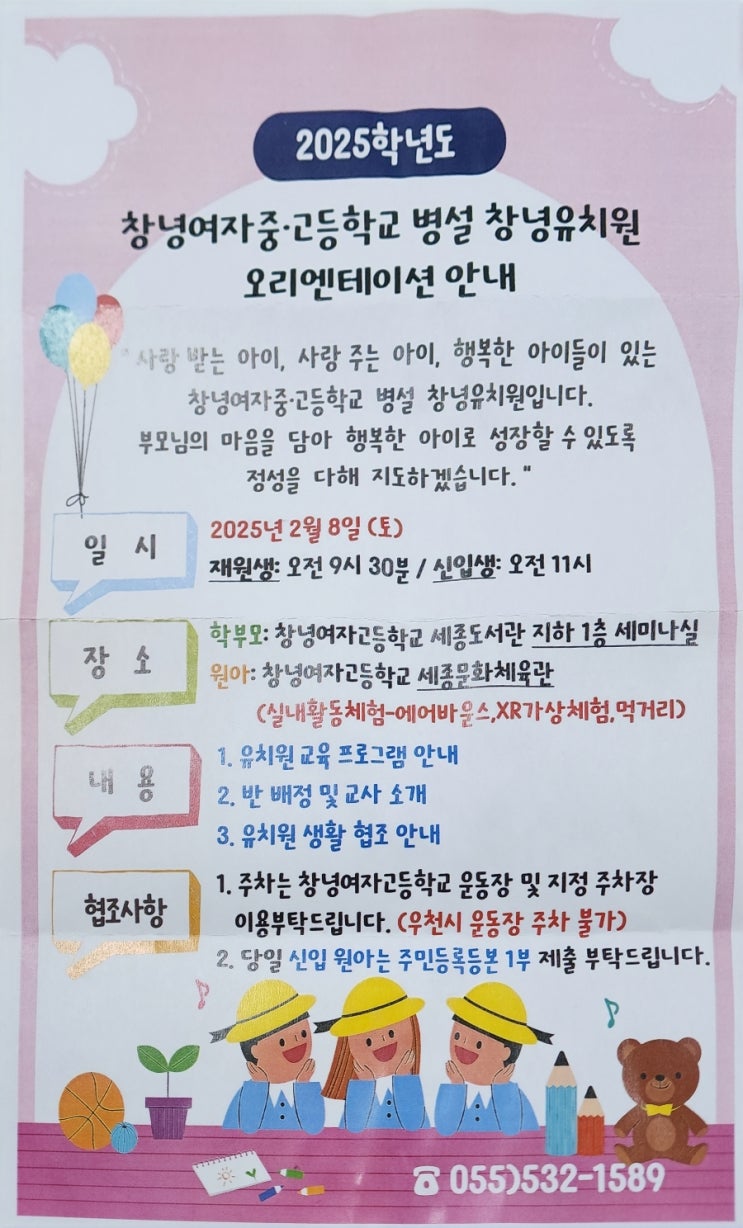 2025학년도
창녕여자중·고등학교 병설 창녕유치원
오리엔테이션 안내
"사랑 받는 아이, 사랑 주는 아이, 행복한 아이들이 있는
창녕여자중·고등학교 병설 창녕유치원입니다.
부모님의 마음을 담아 행복한 아이로 성장할 수 있도록
정성을 다해 지도하겠습니다."
일 시
2025년 2월 8일 (토)
재원생: 오전 9시 30분 / 신입생: 오전 11시
장 소
학부모: 창녕여자고등학교 세종도서관 지하 1층 세미나실
원아: 창녕여자고등학교 세종문화체육관
(실내활동체험-에어바운스,XR가상체험,먹거리)
내 용
1. 유치원 교육 프로그램 안내
2. 반 배정 및 교사 소개
3. 유치원 생활 협조 안내
협조사항
1. 주차는 창녕여자고등학교 운동장 및 지정 주차장
이용부탁드립니다. (우천시 운동장 주차 불가)
2. 당일 신입 원아는 주민등록등본 1부 제출 부탁드립니다.
☎ 055)532-1589